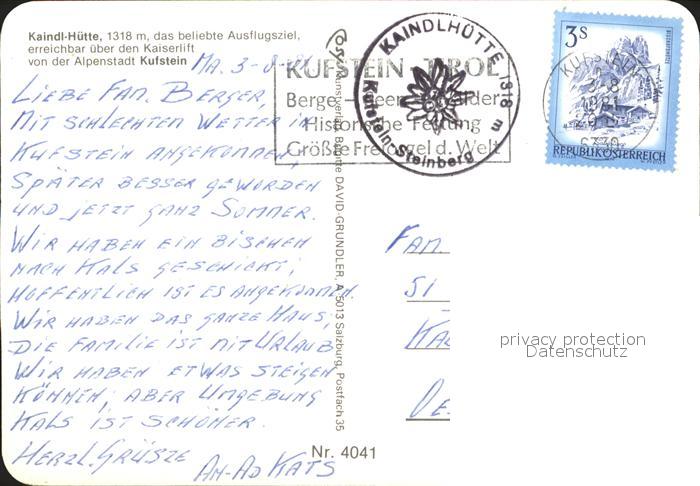 Kaindl-Hütte, 1318 m, das beliebte Ausflugsziel,
erreichbar über den Kaiserlift
von der Alpenstadt Kufstein
MA. 3-8-81
LIEBE FAM. BERGER,
MIT SCHLECHTEN WETTER IN
KUFSTEIN ANGEKOMMEN,
SPÄTER BESSER GEWORDEN
UND JETZT GANZ SOMMER.
WIR HABEN EIN BISCHEN
NACH KALS GESCHICKT,
HOFFENTLICH IST ES ANGEKOMMEN.
WIR HABEN DAS GANZE HAUS,
DIE FAMILIE IST MIT URLAUB
WIR HABEN ETWAS STEIGEN
KÖNNEN, ABER UMGEBUNG
KALS IST SCHÖNER.
HERZL. GRÜSZE
AM-AD KATS
Kunstverlag DAVID-GRUNDLER, A 5013 Salzburg, Postfach 35
Nr. 4041
KUFSTEIN TIROL
Berge Seen Wälder
Historische Festung
Größte Freiorgel d. Welt
KAINDLHÜTTE 1318 m
Kufstein-Steinberg
3S
REPUBLIK ÖSTERREICH
KUFSTEIN
FAM.
SI
KA
OE.
privacy protection
Datenschutz